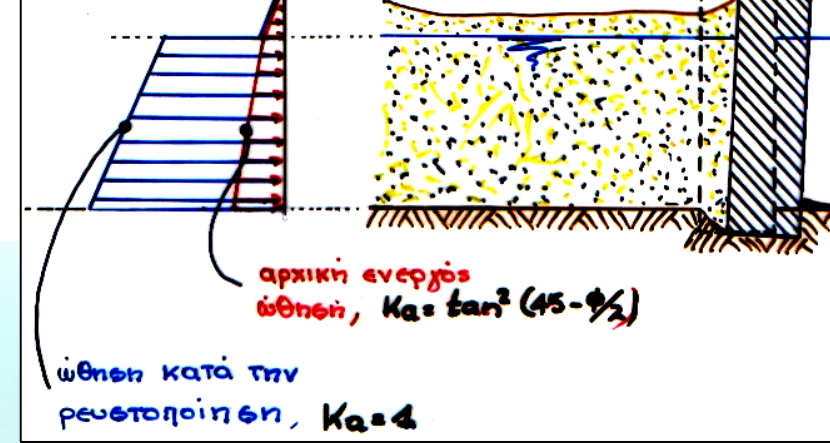 αρχική ενεργός
ώθηση, Ka = tan² (45-φ/2)
ώθηση κατά την
ρευστοποίηση, Ka = 1